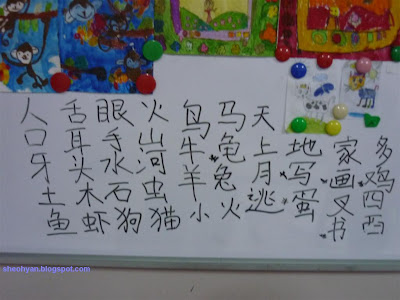 人 舌 眼 火 鸟 马 天
口 耳 手 山 牛 *龟 上 地 家 多
牙 头 水 河 羊 兔 月 *写 *画 *鸡
土 木 石 虫 逃 蛋 叉 四
鱼 虾 狗 猫 小 火 *书 西
sheohyan.blogspot.com